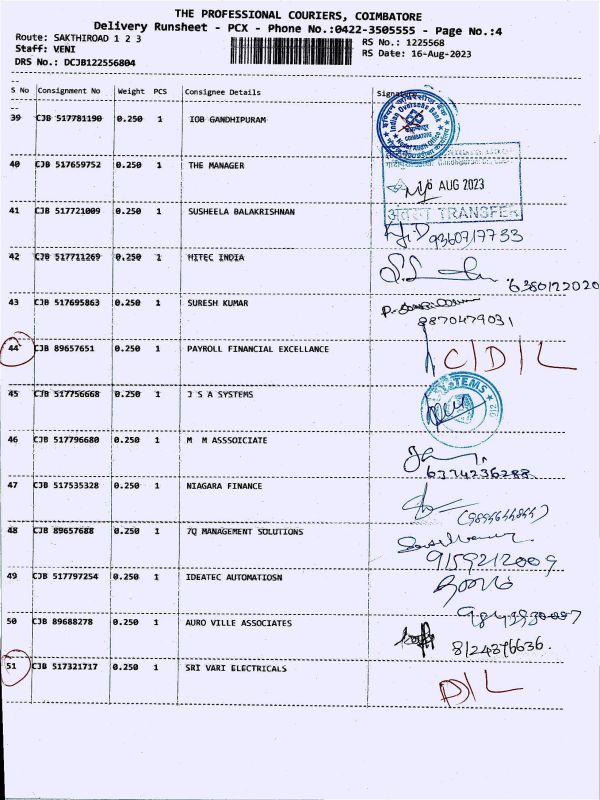 THE PROFESSIONAL COURIERS, COIMBATORE
Delivery Runsheet - PCX - Phone No.:0422-3505555 - Page No.:4
Route: SAKTHIROAD 1 2 3
RS No.: 1225568
Staff: VENI
RS Date: 16-Aug-2023
DRS No.: DCJB122556804
S No Consignment No Weight PCS Consignee Details Signature
39 CJB 517781190 0.250 1 IOB GANDHIPURAM
Indian Overseas Bank
COIMBATORE
40 CJB 517659752 0.250 1 THE MANAGER
AUG 2023
TRANSFER
41 CJB 517721009 0.250 1 SUSHEELA BALAKRISHNAN
9360717733
42 CJB 517711269 0.250 1 HITEC INDIA
6380122020
43 CJB 517695863 0.250 1 SURESH KUMAR
8870479031
44 CJB 89657651 0.250 1 PAYROLL FINANCIAL EXCELLANCE C/D/L
45 CJB 517756668 0.250 1 J S A SYSTEMS
46 CJB 517796680 0.250 1 M M ASSSOICIATE
6374236288
47 CJB 517535328 0.250 1 NIAGARA FINANCE
48 CJB 89657688 0.250 1 7Q MANAGEMENT SOLUTIONS
9159212009
49 CJB 517797254 0.250 1 IDEATEC AUTOMATIOSN
50 CJB 89688278 0.250 1 AURO VILLE ASSOCIATES
8124376636.
51 CJB 517321717 0.250 1 SRI VARI ELECTRICALS D/L